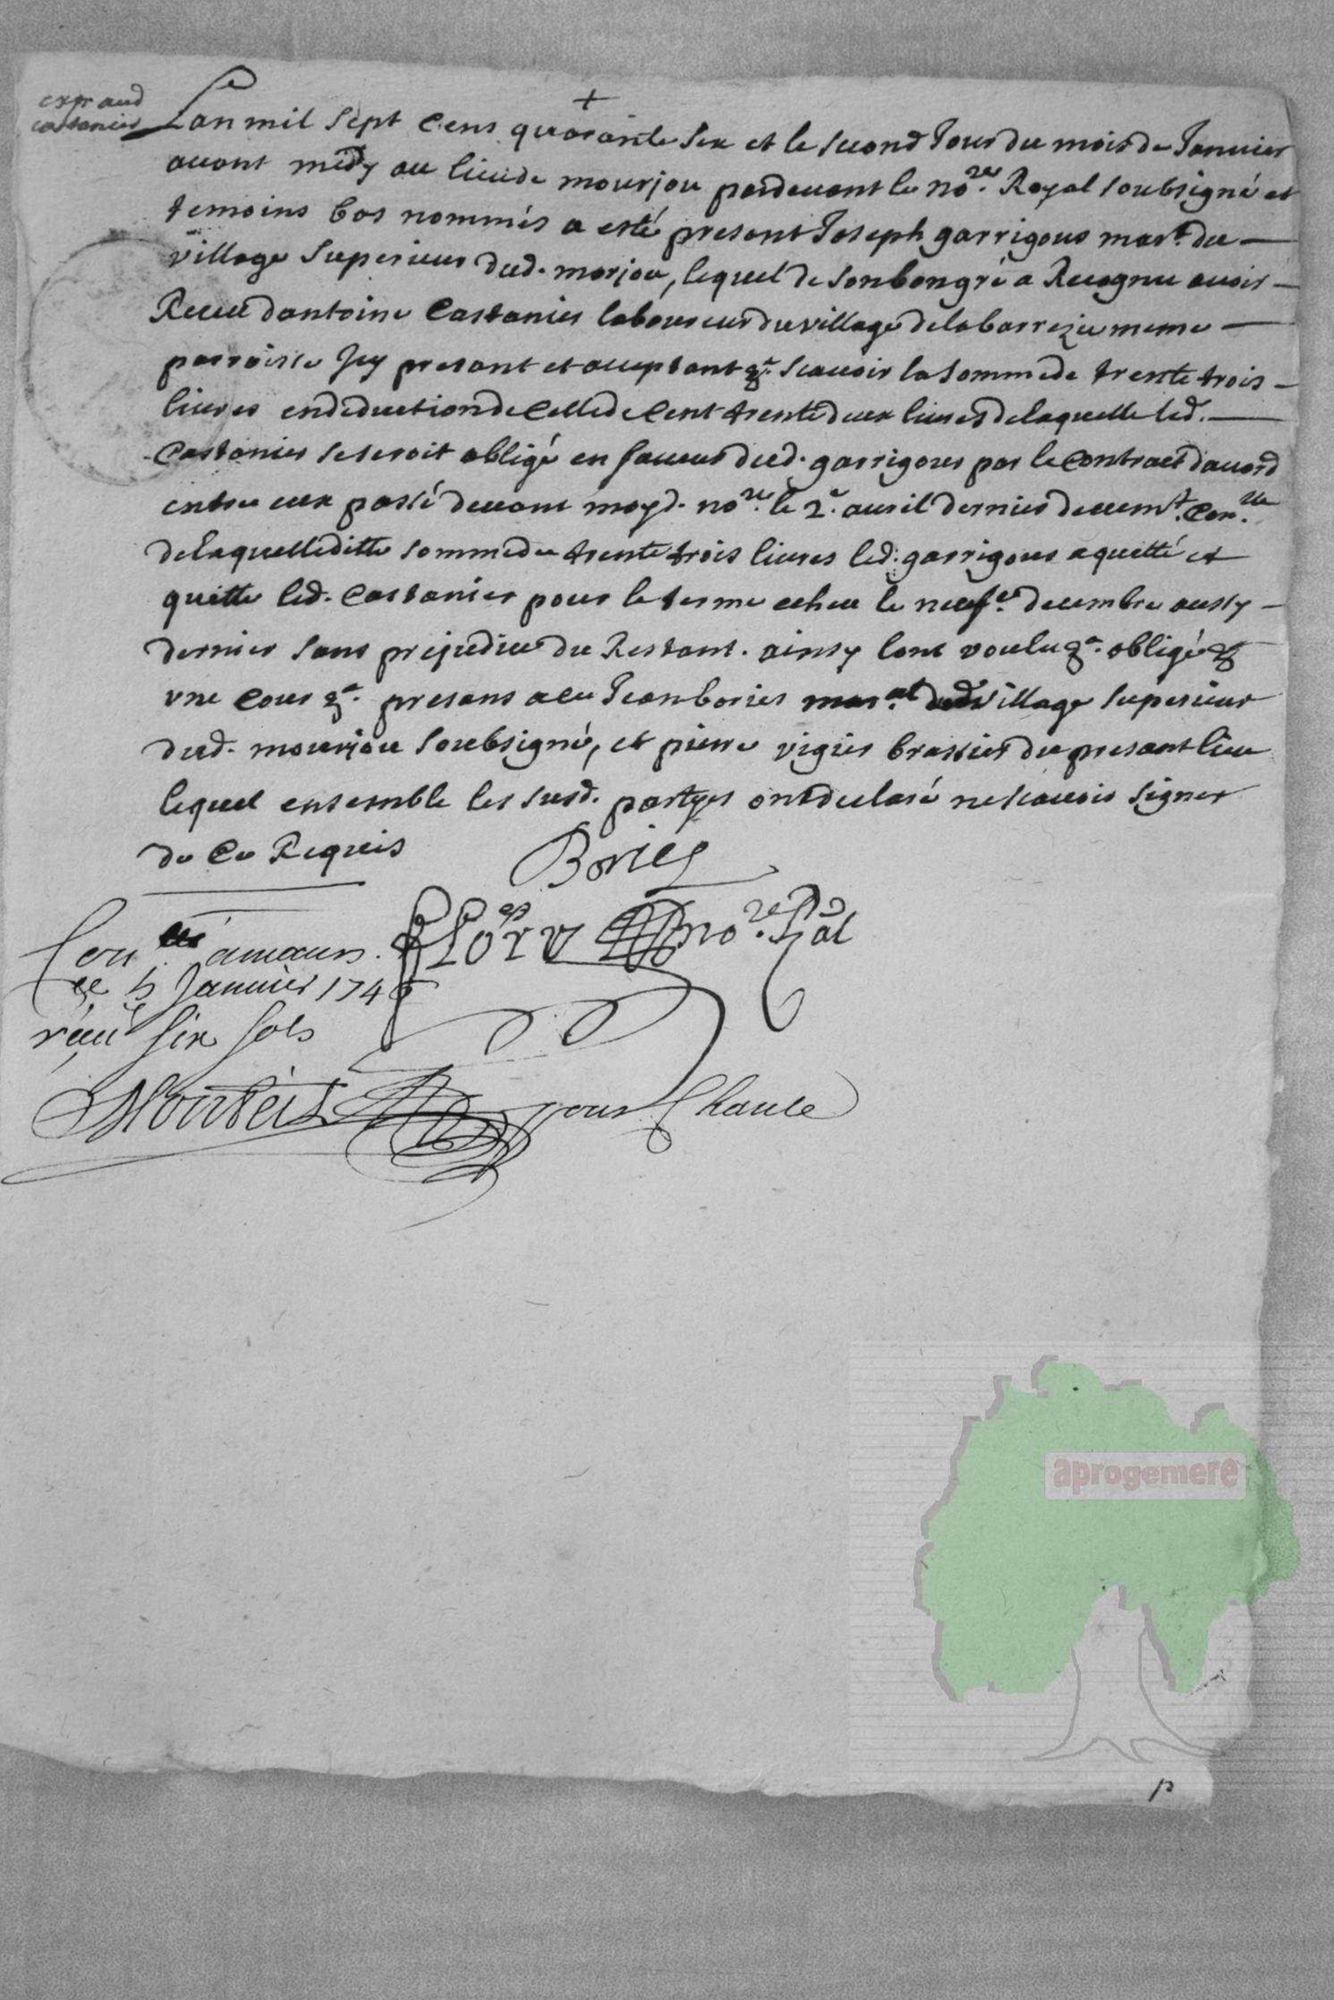 exp. aud
castanier
+
Lan mil sept cens quarante six et le second Jour du mois de Janvier
avant midy au lieu de mourjou pardevant le no.re Royal soubsigné et
temoins bas nommés a esté presant Joseph garrigous mar.t du
village superieur dud. morjou, lequel de son bon gré a Recognu avoir
Receu dantoine Castanier laboureur du village de labarrezie meme
parroisse Icy presant et acceptant &.a scavoir la somme de trente trois
livres en deduction de Celle de Cent trente deux livres de laquelle led.
Castanier se seroit obligé en faveur dud. garrigous par le Contract dacord
entre eux passé devant moyd. no.re le 2.e avril dernier
de laquelle ditte somme de trente trois livres led. garrigous a quitté et
quitte led. Castanier pour le terme echeu le neuf.e decembre aussy
dernier sans prejudice du Restant. ainsy lont voulu &.a obligé &
une Cour &.a presans a ce Jean bories village superieur
dud. mourjou soubsigné, et pierre vigier brassier du presant lieu
lequel ensemble les susd. partyes ont declaré ne scavoir signer
de Ce Requis
Bories
no.re Ral
ce 5 Janvier 1746
receu six sols
pour
aprogemere
p